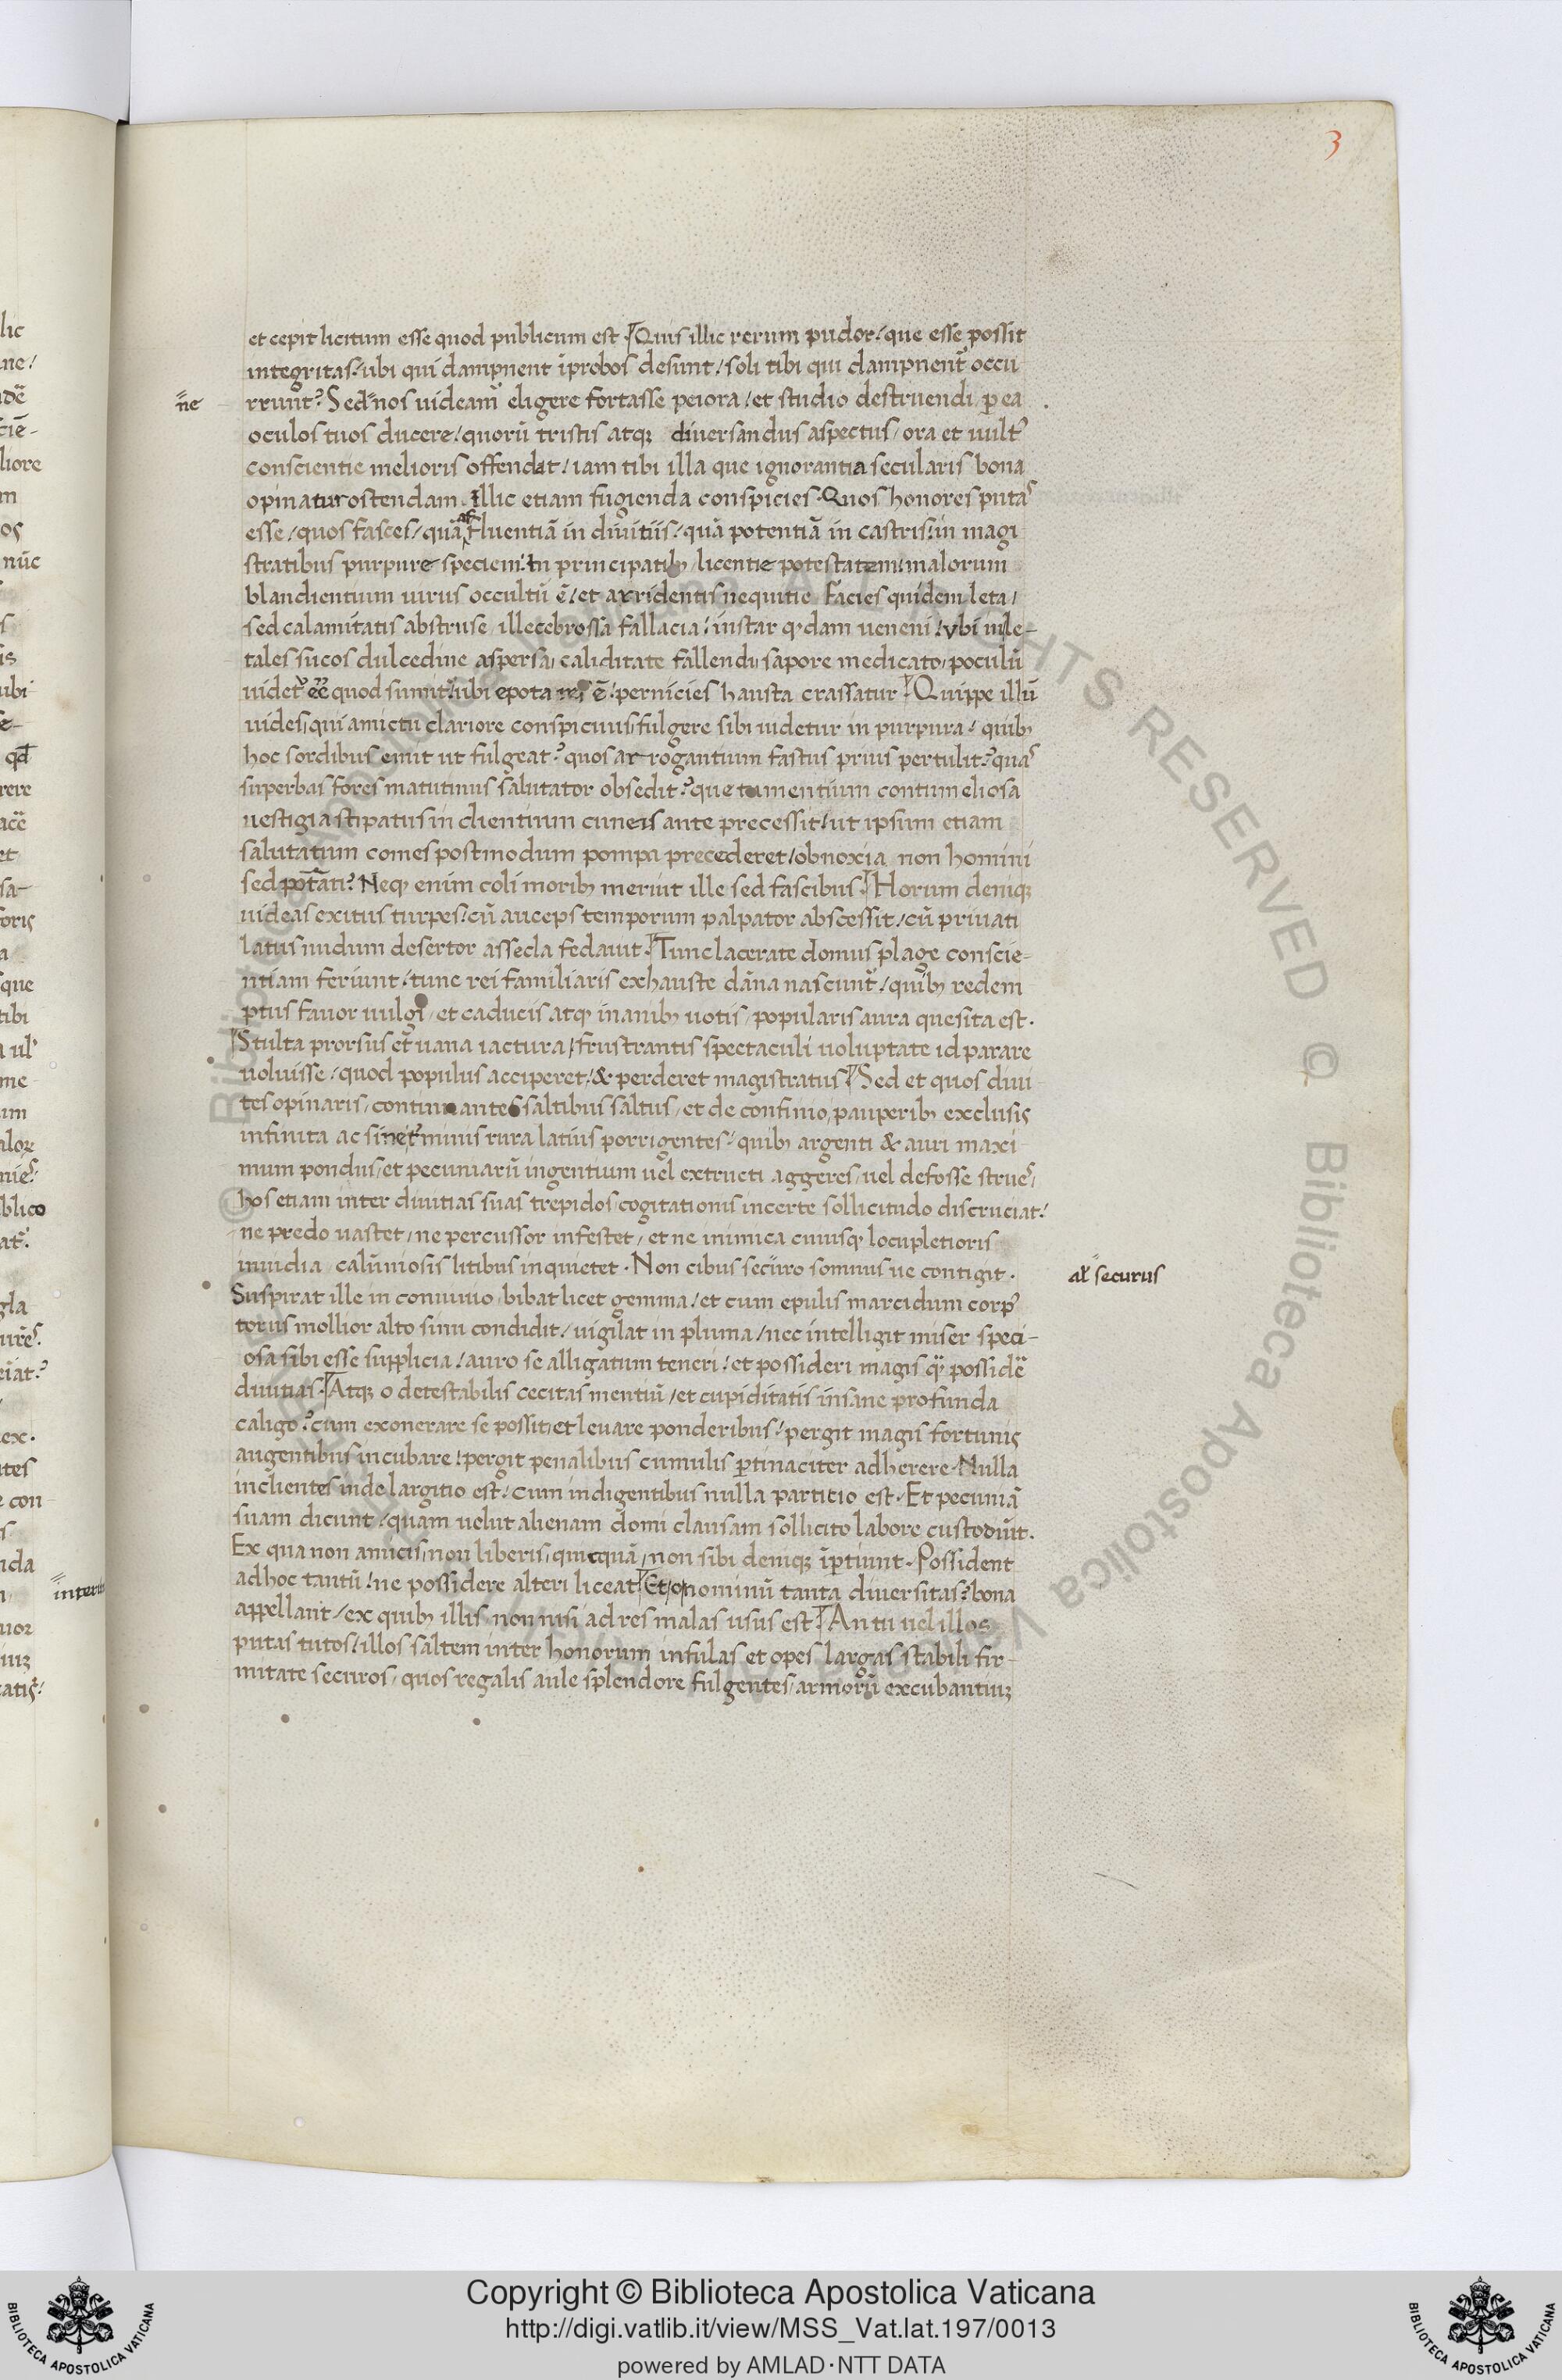 3
et cepit licitum esse quod publicum est. Quis illic rerum pudor/ que esse possit
integritas/ ubi qui dampnent īprobos desunt/ soli tibi qui dampnent᷑ occu
rrunt? Sed nos uideam᷑ eligere fortasse peiora/ et studio destruendi ꝑ ea
ne
oculos tuos ducere/ quorū tristis atqꝫ diuersandus aspectus/ ora et uultꝰ
conscientie melioris offendat/ iam tibi illa que ignorantia secularis bona
opinatur ostendam. Illic etiam fugienda conspicies. Quos honores putas
esse/ quos fasces/ quā affluentiā in diuitiis/ quā potentiā in castris/ in magi
stratibus purpure speciem/ In principatibꝫ licentie potestatem/ malorum
blandientium uirus occultū ē/ et arridentis nequitie Facies quidem leta/
sed calamitatis abstruse illecebrossa fallacia/ instar q̇dam ueneni/ vbi in le-
tales sucos dulcedine aspersa/ caliditate fallendi/ sapore medicato/ poculū
uidet᷑ eē quod sumit᷑/ ubi epota res ē/ pernicies hausta crassatur. Quippe illū
uides/ qui amictu clariore conspicuus/ fulgere sibi uidetur in purpura/ quibꝫ
hoc sordibus emit ut fulgeat? quos arrogantium fastus prius pertulit? quas
superbas fores matutinus salutator obsedit? que tumentium contumeliosa
uestigia stipatus in clientium cuneis ante precessit/ ut ipsum etiam
salutatum comes postmodum pompa precederet/ obnoxia non homini
sed pot̄ati? Neqꝫ enim coli moribꝫ meruit ille sed fascibus. Horum deniqꝫ
uideas exitus turpes/ cū auceps temporum palpator abscessit/ cū priuati
latus nudum desertor assecla fedauit. Tunc lacerate domus plage conscie-
ntiam feriunt/ tunc rei familiaris exhauste dāna nascunt᷑/ quibꝫ redem
ptus fauor uulgi/ et caducis atqꝫ inanibꝫ uotis/ popularis aura quesita est.
Stulta prorsus et uana iactura/ frustrantis spectaculi uoluptate id parare
uoluisse/ quod populus acciperet/ & perderet magistratus. Sed et quos diui
tes opinaris/ continuantes saltibus saltus/ et de confinio pauperibꝫ exclusis
infinita ac sine t᷑minis rura latius porrigentes/ quibꝫ argenti & auri maxi
mum pondus/ et pecuniarū ingentium uel extructi aggeres/ uel defosse strues/
hos etiam inter diuitias suas trepidos cogitationis incerte sollicitudo discruciat/
ne predo uastet/ ne percussor infestet/ et ne inimica cuiusqꝫ locupletioris
inuidia calūniosis litibus inquietet. Non cibus securo somnus ue contigit.
al᷑ securus
Suspirat ille in conuiuio bibat licet gemma/ et cum epulis marcidum corpꝰ
torus mollior alto sinu condidit/ uigilat in pluma/ nec intelligit miser speci-
osa sibi esse supplicia/ auro se alligatum teneri/ et possideri magis q̄ possidē
diuitias. Atqꝫ o detestabilis cecitas mentiū/ et cupiditatis insane profunda
caligo? cum exonerare se possit/ et leuare ponderibus/ pergit magis fortunis
augentibus incubare/ pergit penalibus cumulis ꝑtinaciter adherere. Nulla
in clientes inde largitio est/ cum indigentibus nulla partitio est. Et pecuniā
suam dicunt/ quam uelut alienam domi clausam sollicito labore custodiūt.
Ex qua non amicis/ non liberis/ quicquā/ non sibi deniqꝫ īꝑtiunt. Possident
ad hoc tantū/ ne possidere alteri liceat. Et/ o/ nominū tanta diuersitas? bona
appellant/ ex quibꝫ illis non nisi ad res malas usus est. An tu uel illos
putas tutos/ illos saltem inter honorum infulas et opes largas stabili fir-
mitate securos/ quos regalis aule splendore fulgentes/ armorū excubantiuꝫ
Copyright © Biblioteca Apostolica Vaticana
http://digi.vatlib.it/view/MSS_Vat.lat.197/0013
powered by AMLAD·NTT DATA